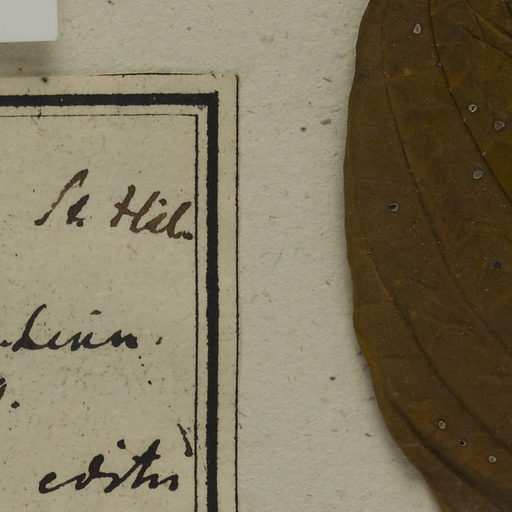 St. Hil.
Linn.
edidi